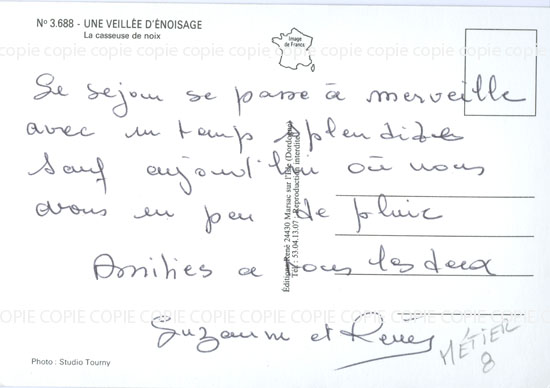 Nº 3.688 - UNE VEILLÉE D'ÉNOISAGE
La casseuse de noix
Image de France
COPIE COPIE COPIE COPIE COPIE COPIE COPIE COPIE COPIE COPIE
Le séjour se passe à merveille
avec un temps splendide
sauf aujourd'hui où nous
avons un peu de pluie
Amitiés à vous les deux
Suzanne et René
Éditions René 24430 Marsac sur l'Isle (Dordogne)
Tél : 53.04.13.07 - Reproduction interdite
COPIE COPIE COPIE COPIE COPIE COPIE COPIE COPIE COPIE COPIE
MÉTIER
8
Photo : Studio Tourny